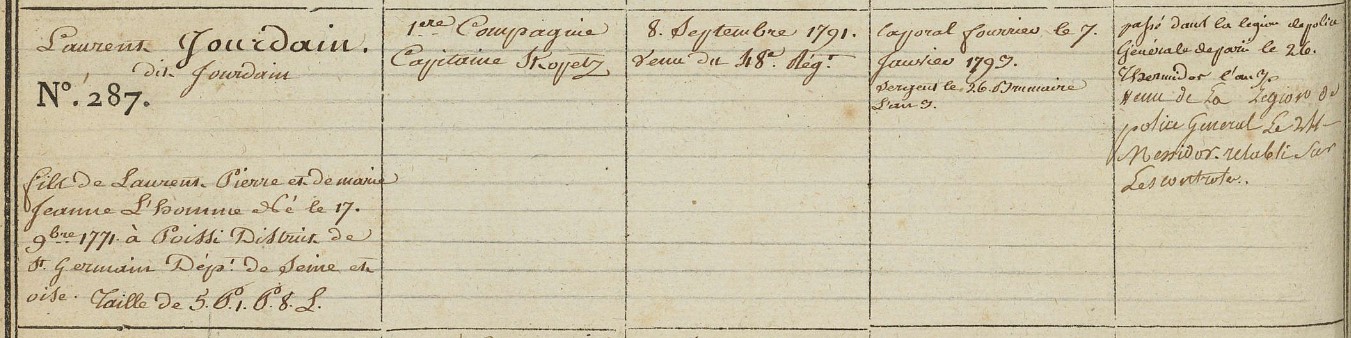 Laurent Jourdain.
dit Jourdain
N.º 287.
fils de Laurent Pierre et de marie
Jeanne L'homme Né le 17.
9bre 1771. à Poissi District de
St. Germain Dépt. de Seine et
oise. Taille de 5. Po. 1. Po. 8. L.
1ere Compagnie
Capitaine
8. Septembre 1791.
Venu du 48e. Régt.
Caporal fourrier le 7.
Janvier 1793.
Sergent le 26. Brumaire
L'an 3.
passé dans la legion de police
Générale de paris le 26.
Thermidor l'an 3.
Venu de La Legion de
police General Le 24
Messidor retabli Sur
Les controles.